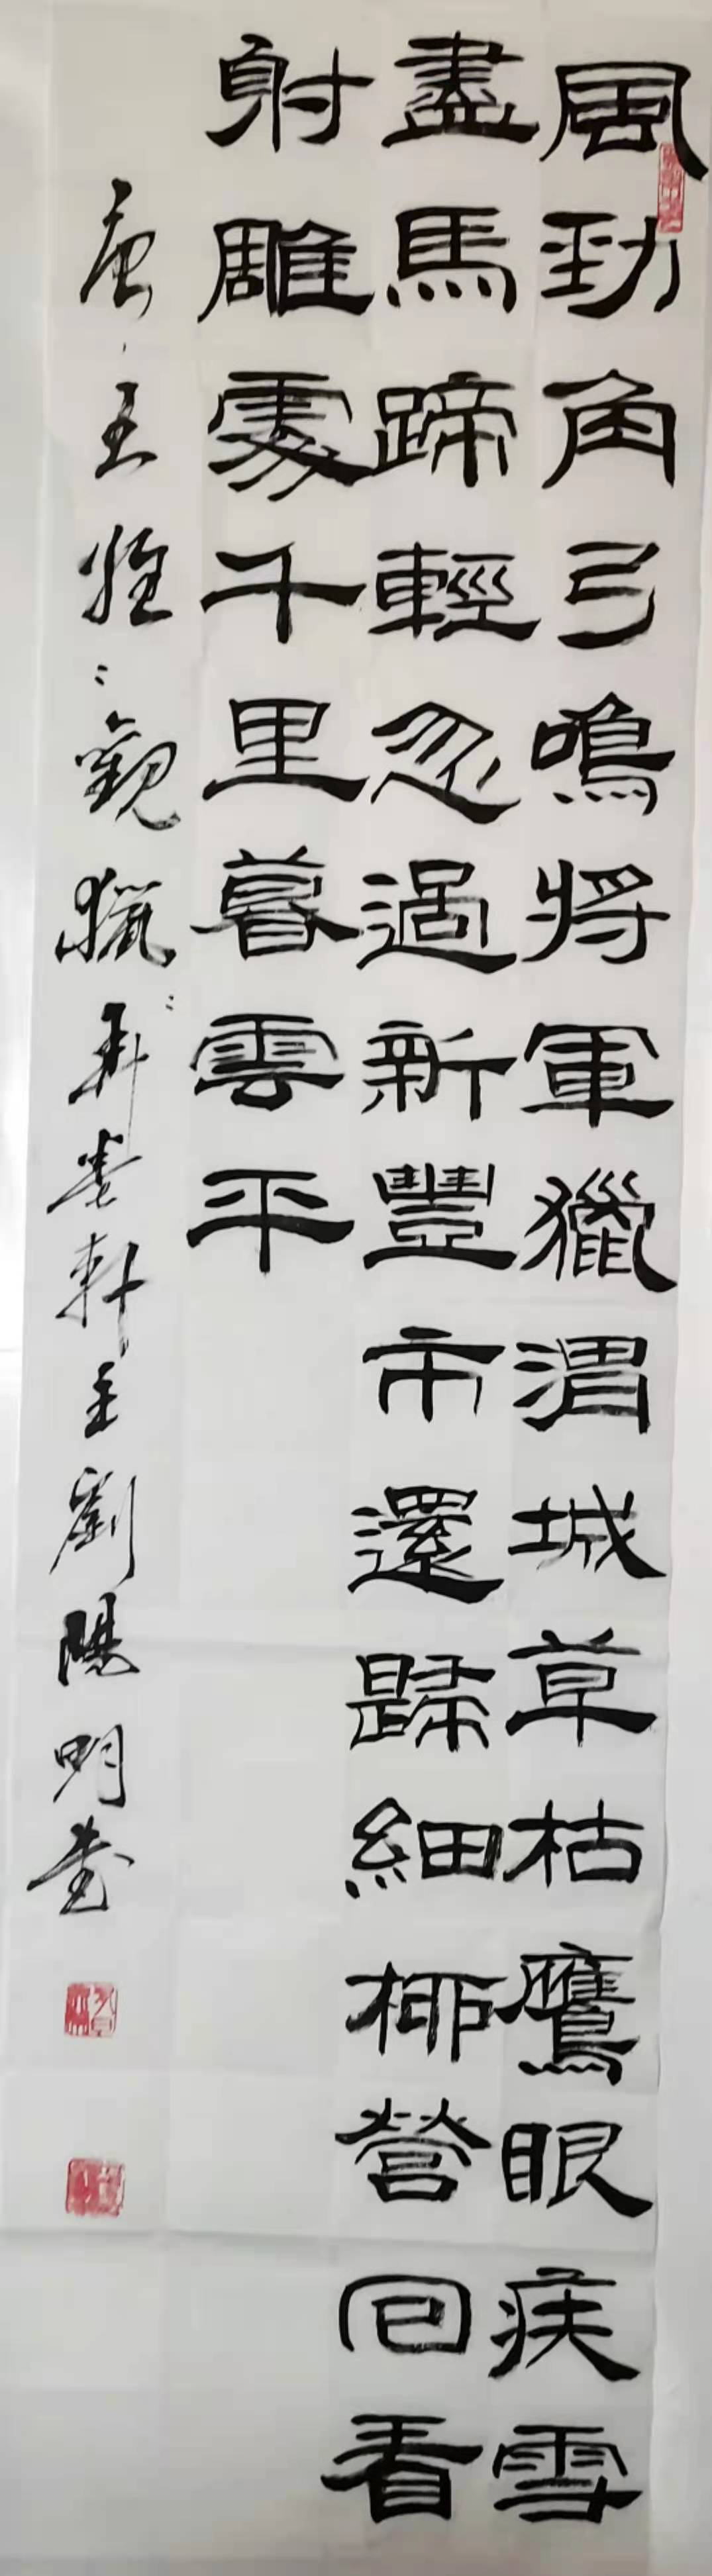 風勁角弓鳴將軍獵渭城草枯鷹眼疾雪
盡馬蹄輕忽過新豐市還歸細柳營回看
射雕處千里暮雲平
唐王維觀獵軒主劉陽明書